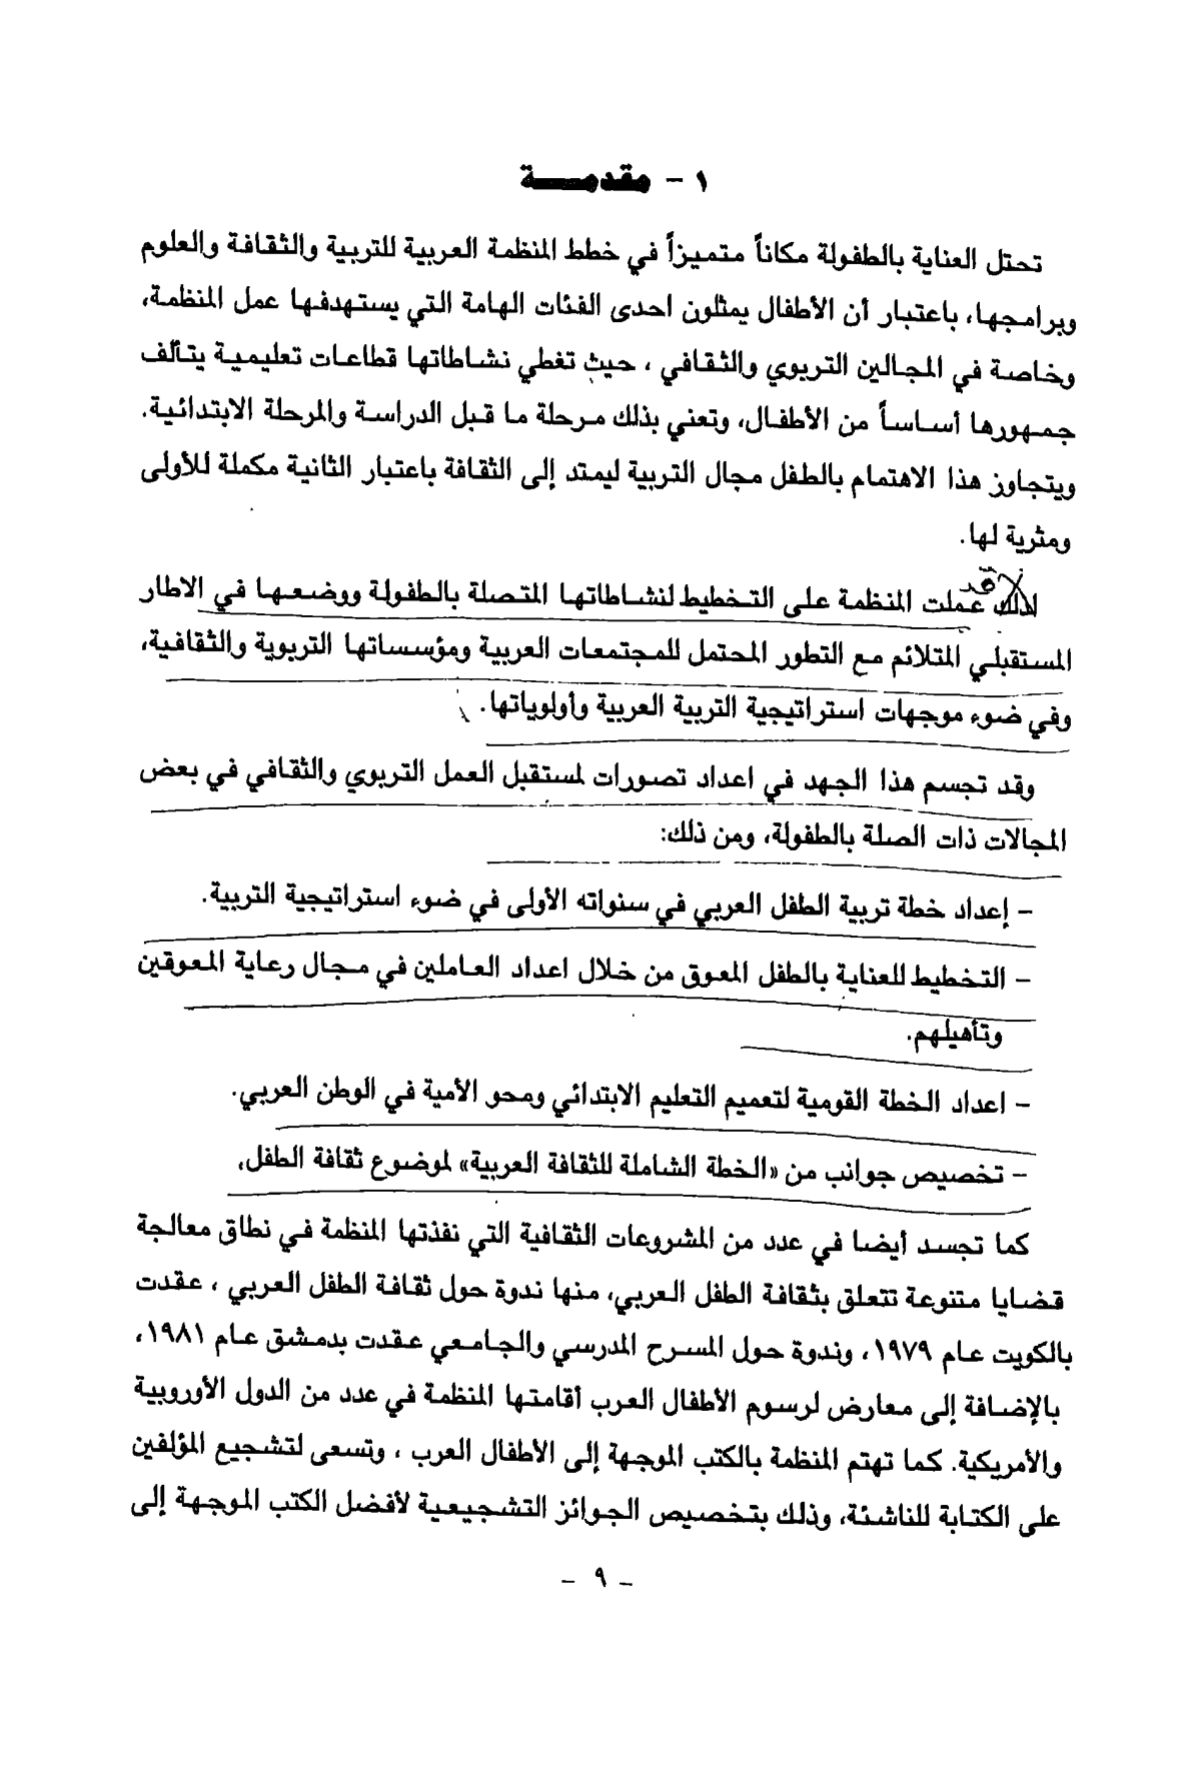 ١ - مقدمـــــة
تحتل العناية بالطفولة مكاناً متميزاً في خطط المنظمة العربية للتربية والثقافة والعلوم
وبرامجها، باعتبار أن الأطفال يمثلون احدى الفئات الهامة التي يستهدفها عمل المنظمة،
وخاصة في المجالين التربوي والثقافي ، حيث تغطي نشاطاتها قطاعات تعليمية يتألف
جمهورها أساساً من الأطفال، وتعني بذلك مرحلة ما قبل الدراسة والمرحلة الابتدائية.
ويتجاوز هذا الاهتمام بالطفل مجال التربية ليمتد إلى الثقافة باعتبار الثانية مكملة للأولى
ومثرية لها.
قد
لذلك عملت المنظمة على التخطيط لنشاطاتها المتصلة بالطفولة ووضعها في الاطار
المستقبلي المتلائم مع التطور المحتمل للمجتمعات العربية ومؤسساتها التربوية والثقافية،
وفي ضوء موجهات استراتيجية التربية العربية وأولوياتها.
وقد تجسم هذا الجهد في اعداد تصورات لمستقبل العمل التربوي والثقافي في بعض
المجالات ذات الصلة بالطفولة، ومن ذلك:
- إعداد خطة تربية الطفل العربي في سنواته الأولى في ضوء استراتيجية التربية.
- التخطيط للعناية بالطفل المعوق من خلال اعداد العاملين في مجال رعاية المعوقين
وتأهيلهم.
- اعداد الخطة القومية لتعميم التعليم الابتدائي ومحو الأمية في الوطن العربي.
- تخصيص جوانب من «الخطة الشاملة للثقافة العربية» لموضوع ثقافة الطفل،
كما تجسد أيضا في عدد من المشروعات الثقافية التي نفذتها المنظمة في نطاق معالجة
قضايا متنوعة تتعلق بثقافة الطفل العربي، منها ندوة حول ثقافة الطفل العربي ، عقدت
بالكويت عام ١٩٧٩، وندوة حول المسرح المدرسي والجامعي عقدت بدمشق عام ١٩٨١،
بالإضافة إلى معارض لرسوم الأطفال العرب أقامتها المنظمة في عدد من الدول الأوروبية
والأمريكية. كما تهتم المنظمة بالكتب الموجهة إلى الأطفال العرب ، وتسعى لتشجيع المؤلفين
على الكتابة للناشئة، وذلك بتخصيص الجوائز التشجيعية لأفضل الكتب الموجهة إلى
- ٩ -